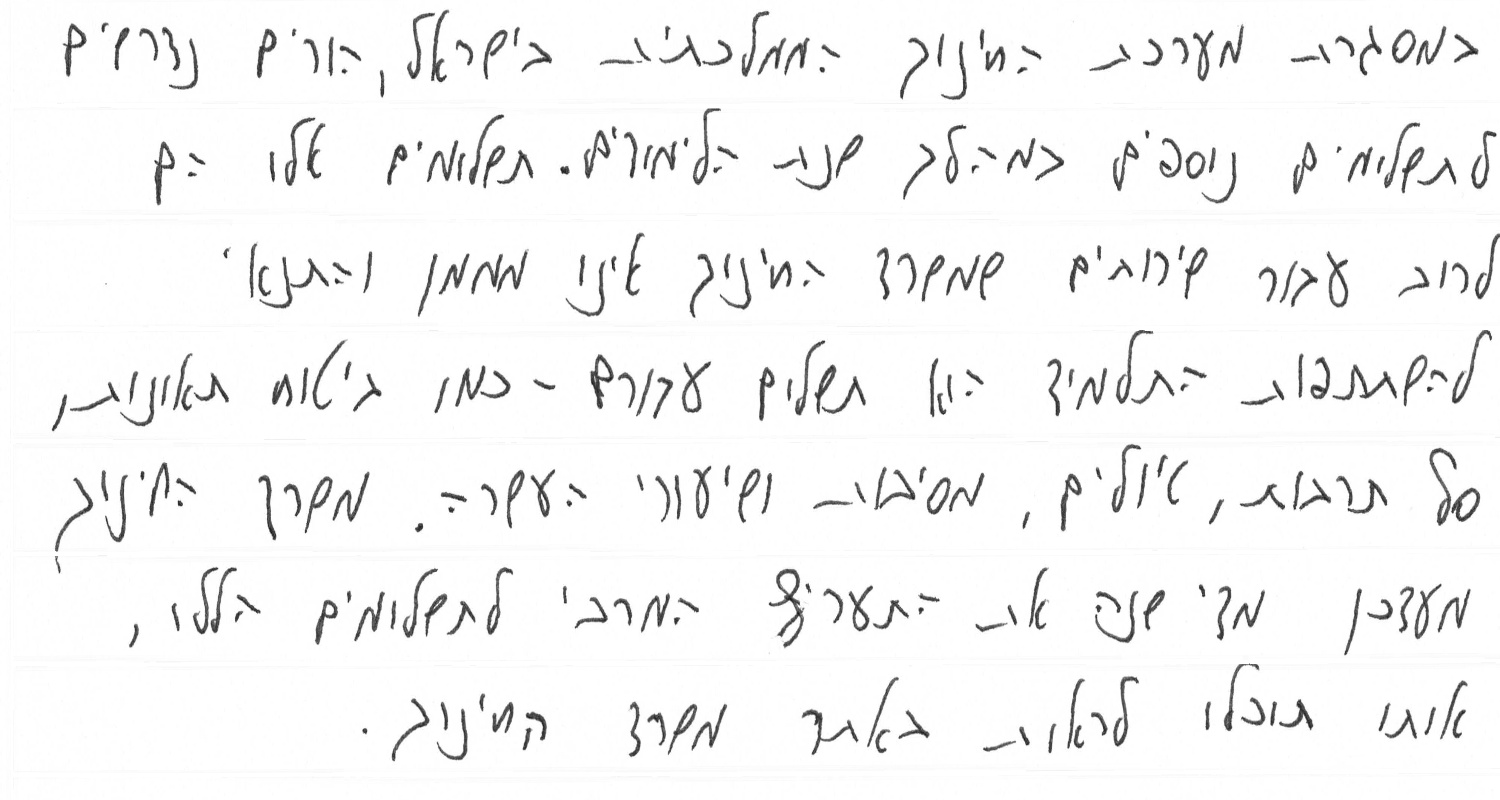 במסגרת מערכת החינוך הממלכתית בישראל, הורים נדרשים
לתשלומים נוספים במהלך שנת הלימודים. תשלומים אלו הם
לרוב עבור שירותים שמשרד החינוך אינו מממן והתנאי
להשתתפות התלמיד הוא תשלום עבורם - כמו ביטוח תאונות,
סל תרבות, טיולים, מסיבות ושיעורי העשרה. משרד החינוך
מעדכן מדי שנה את התעריף המרבי לתשלומים הללו,
אותו תוכלו לראות באתר משרד החינוך.